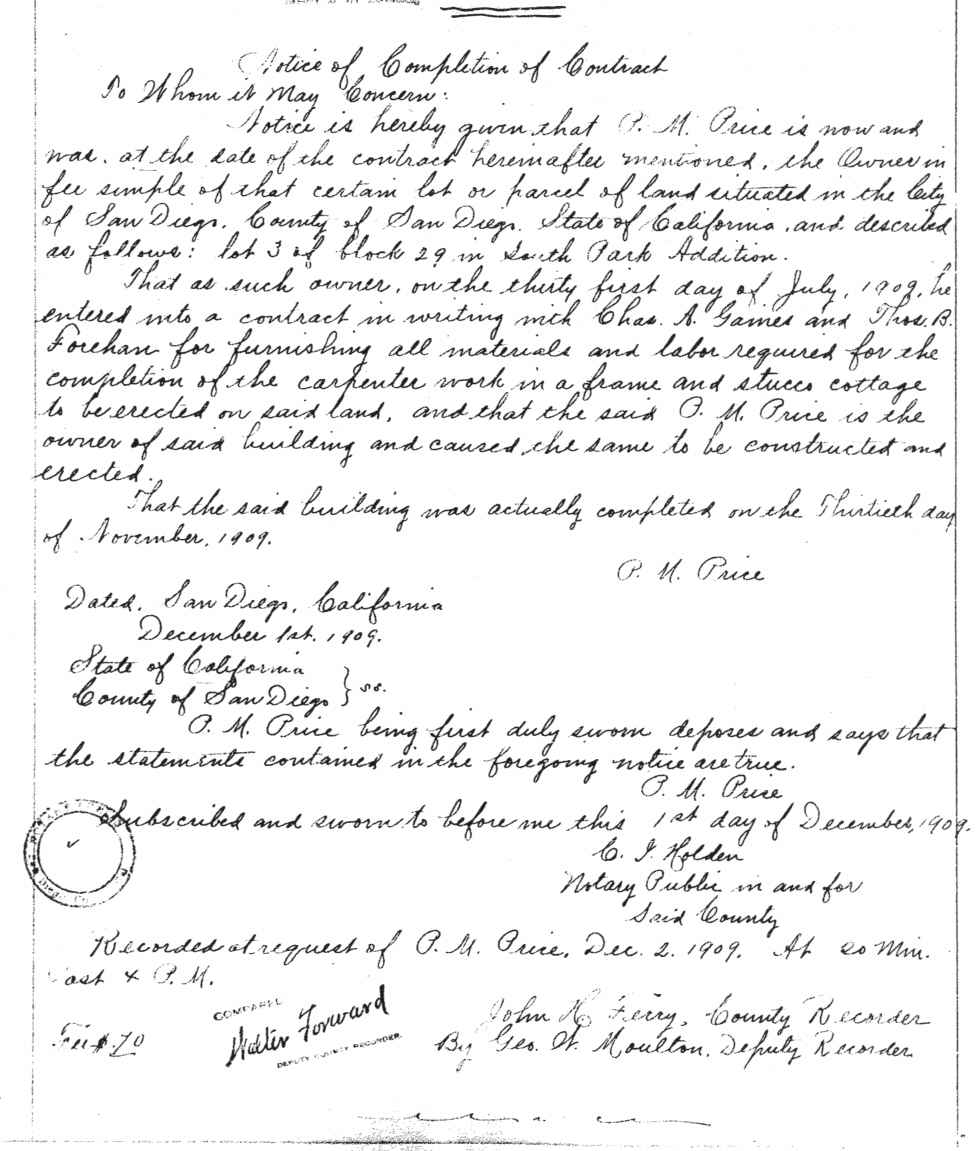 Notice of Completion of Contract
To Whom it May Concern:
Notice is hereby given that P. M. Price is now and
was, at the date of the contract hereinafter mentioned, the Owner in
fee simple of that certain lot or parcel of land situated in the City
of San Diego, County of San Diego, State of California, and described
as follows: lot 3 of block 29 in South Park Addition.
That as such owner, on the thirty first day of July, 1909, he
entered into a contract in writing with Chas. A. Gaines and Thos. B.
Forehan for furnishing all materials and labor required for the
completion of the carpenter work in a frame and stucco cottage
to be erected on said land, and that the said P. M. Price is the
owner of said building and caused the same to be constructed and
erected.
That the said building was actually completed on the Thirtieth day
of November, 1909.
P. M. Price
Dated, San Diego, California
December 1st. 1909.
State of California
County of San Diego } ss.
P. M. Price being first duly sworn deposes and says that
the statements contained in the foregoing notice are true.
P. M. Price
Subscribed and sworn to before me this 1st day of December, 1909.
C. I. Holden
Notary Public in and for
Said County
Recorded at request of P. M. Price, Dec. 2. 1909. At 20 Min.
Past 4 P.M.
Fee $.70
COMPARED
Walter Forward
DEPUTY COUNTY RECORDER
John H. Ferry, County Recorder
By Geo. W. Moulton, Deputy Recorder